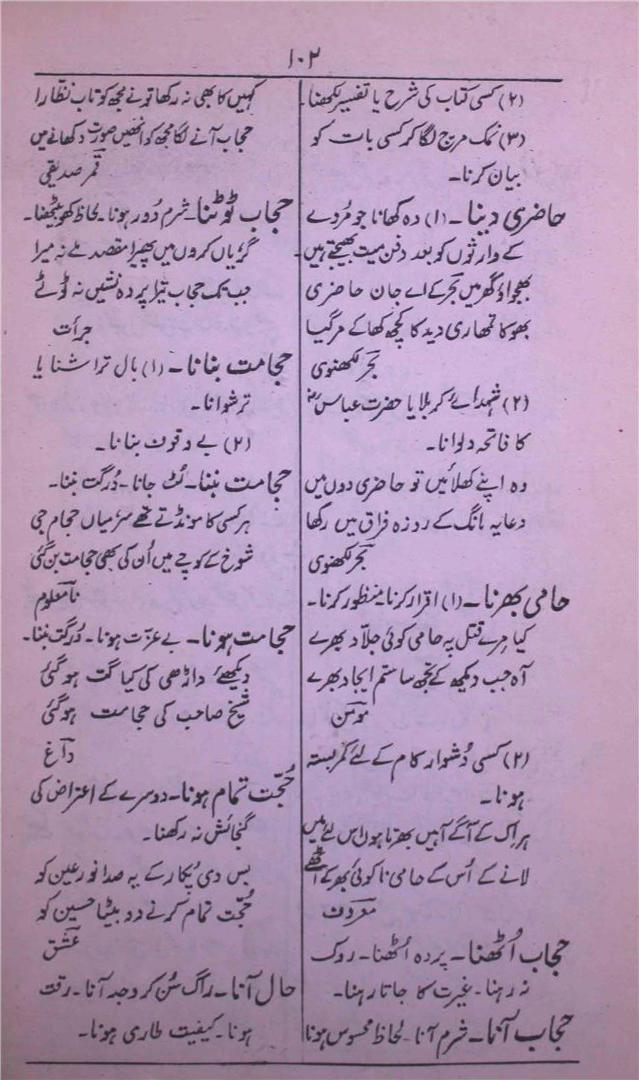 ۱۰۲
(۲) کسی کتاب کی شرح یا تفسیر لکھنا۔
(۳) نمک مرچ لگا کر کسی بات کو
بیان کرنا۔
حاضری دینا۔ (۱) وہ کھانا جو مُردے
کے وارثوں کو بعد دفن میت بھیجتے ہیں۔
بھجواؤ گھر میں بحر کے اے جان حاضری
بھوکا تمھاری دید کا کچھ کھا کے مر گیا
بحر لکھنوی
(۲) شہدائے کربلا یا حضرت عباسؓ
کا فاتحہ دلوانا۔
وہ اپنے کھلائیں تو حاضری دوں میں
دعایہ مانگ کے روزہ فراق میں رکھا
بحر لکھنوی
حامی بھرنا۔ (۱) اقرار کرنا۔ منظور کرنا۔
کیا مرے قتل پہ حامی کوئی جلاد بھرے
آہ جب دیکھ کے تجھ سا ستم ایجاد بھرے
مومن
(۲) کسی دُشوار کام کے لئے کمر بستہ
ہونا۔
ہر اک کے آگے آہیں بھرتا ہوں اس لئے میں
لانے کے اُس کے حامی تا کوئی بھر کے اٹھے
معروف
حجاب اُٹھنا۔ پردہ اُٹھنا۔ روک
نہ رہنا۔ غیرت کا جاتا رہنا۔
حجاب آنا۔ شرم آنا۔ لحاظ محسوس ہونا
کہیں کا بھی نہ رکھا تو نے مجھ کو تاب نظارا
حجاب آنے لگا مجھ کو انھیں صورت دکھانے میں
قمر صدیقی
حجاب ٹوٹنا۔ شرم دور ہونا۔ لحاظ کھو بیٹھنا۔
گڑیاں کروں میں پھیرا مقصد ملے نہ میرا
جب تک حجاب تیرا پردہ نشیں نہ ٹوٹے
جرأت
حجامت بنانا۔ (۱) بال تراشنا یا
ترشوانا۔
(۲) بے وقوف بنانا۔
حجامت بننا۔ لُٹ جانا۔ دُرگت بننا۔
ہر کسی کا مونڈتے تھے سر میاں حجام جی
شوخ کے کوچے میں اُن کی بھی حجامت بن گئی
نامعلوم
حجامت ہونا۔ بے عزت ہونا۔ دُرگت بننا۔
دیکھئے داڑھی کی کیا گت ہو گئی
شیخ صاحب کی حجامت ہو گئی
داغ
حُجّت تمام ہونا۔ دوسرے کے اعتراض کی
گنجائش نہ رکھنا۔
بس دی پُکار کے یہ صدا نورعین کو
حُجّت تمام کرنے دو بیٹا حسین کو
عشق
حال آنا۔ راگ سُن کر وجد آنا۔ رقت
ہونا۔ کیفیت طاری ہونا۔